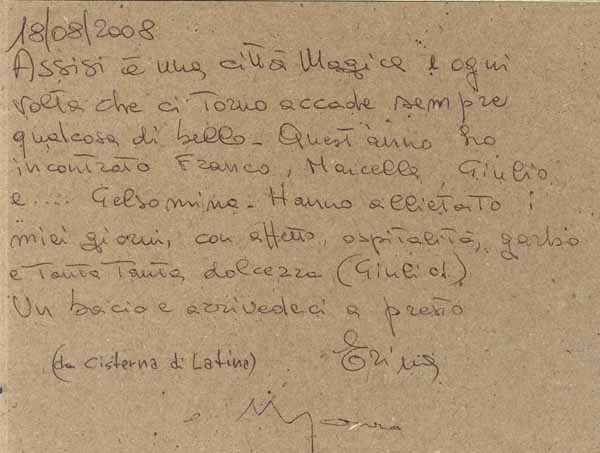 18/08/2008
Assisi è una città Magica e ogni
volta che ci torno accade sempre
qualcosa di bello - Quest'anno ho
incontrato Franco, Marcella, Giulio
e .... Gelsomina - Hanno allietato i
miei giorni, con affetto, ospitalità, garbo
e tanta tanta dolcezza (Giulio!)
Un bacio e arrivedeci a presto
(da Cisterna di Latina)
e